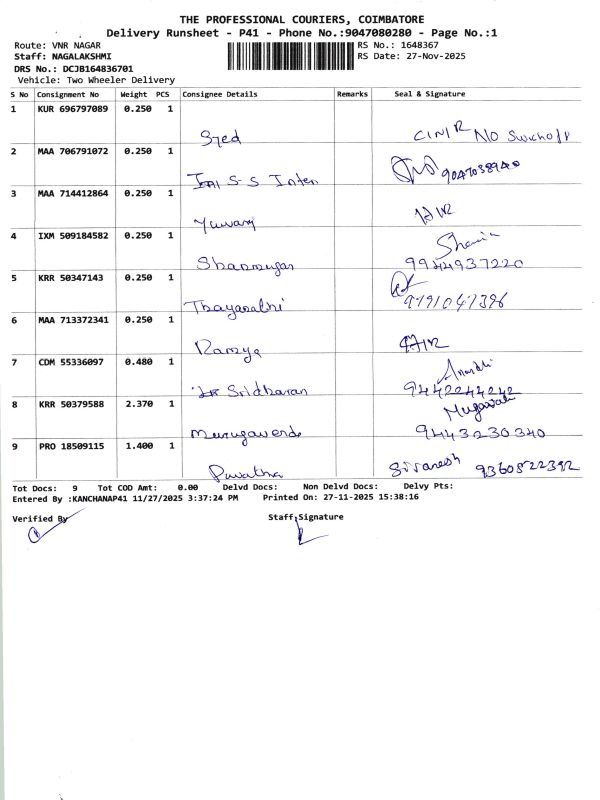 THE PROFESSIONAL COURIERS, COIMBATORE
Delivery Runsheet - P41 - Phone No.:9047080280 - Page No.:1
Route: VNR NAGAR
RS No.: 1648367
Staff: NAGALAKSHMI
RS Date: 27-Nov-2025
DRS No.: DCJB164836701
Vehicle: Two Wheeler Delivery
S No Consignment No Weight PCS Consignee Details Remarks Seal & Signature
1 KUR 696797089 0.250 1
Syed
2 MAA 706791072 0.250 1
S-S Inten 9047038940
3 MAA 714412864 0.250 1
4 IXM 509184582 0.250 1
Shanmugan 9944937220
5 KRR 50347143 0.250 1
9791047396
6 MAA 713372341 0.250 1
Ramya
7 CDM 55336097 0.480 1
Sridharan 9442244242
8 KRR 50379588 2.370 1
9443230340
9 PRO 18509115 1.400 1
9360822392
Tot Docs: 9 Tot COD Amt: 0.00 Delvd Docs: Non Delvd Docs: Delvy Pts:
Entered By :KANCHANAP41 11/27/2025 3:37:24 PM Printed On: 27-11-2025 15:38:16
Verified By Staff Signature